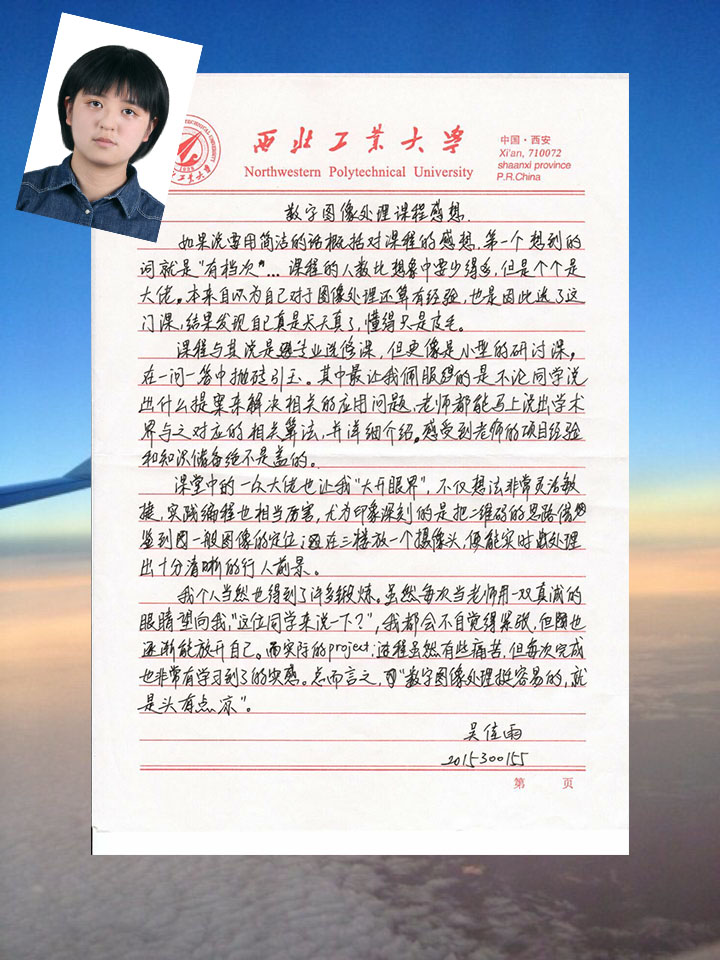 西北工业大学
Northwestern Polytechnical University
中国·西安
Xi'an, 710072
shaanxi province
P.R.China
数字图像处理课程感想.
如果说要用简洁的话概括对课程的感想,第一个想到的
词就是“有档次”... 课程的人数比想象中要少得多,但是个个是
大佬。本来自以为自己对于图像处理还算有经验,也是因此选了这
门课,结果发现自己真是太天真了,懂得只是皮毛。
课程与其说是专业选修课,但更像是小型的研讨课,
在一问一答中抛砖引玉。其中最让我佩服的是不论同学说
出什么提案来解决相关的应用问题,老师都能马上说出学术
界与之对应的相关算法,并详细介绍。感受到老师的项目经验
和知识储备绝不是盖的。
课堂中的一众大佬也让我“大开眼界”,不仅想法非常灵活敏
捷,实践编程也相当厉害,尤为印象深刻的是把二维码的思路借
鉴到图一般图像的定位;还在三楼放一个摄像头,便能实时处理
出十分清晰的行人前景。
我个人当然也得到了许多锻炼。虽然每次当老师用一双真诚的
眼睛望向我,“这位同学来说一下?”,我都会不自觉得紧张,但也
逐渐能放开自己。而实际的project,过程虽然有些痛苦,但每次完成
也非常有学习到了的实感。总而言之,“数字图像处理挺容易的,就
是头有点凉”。
吴佳雨
2015300155
第 页